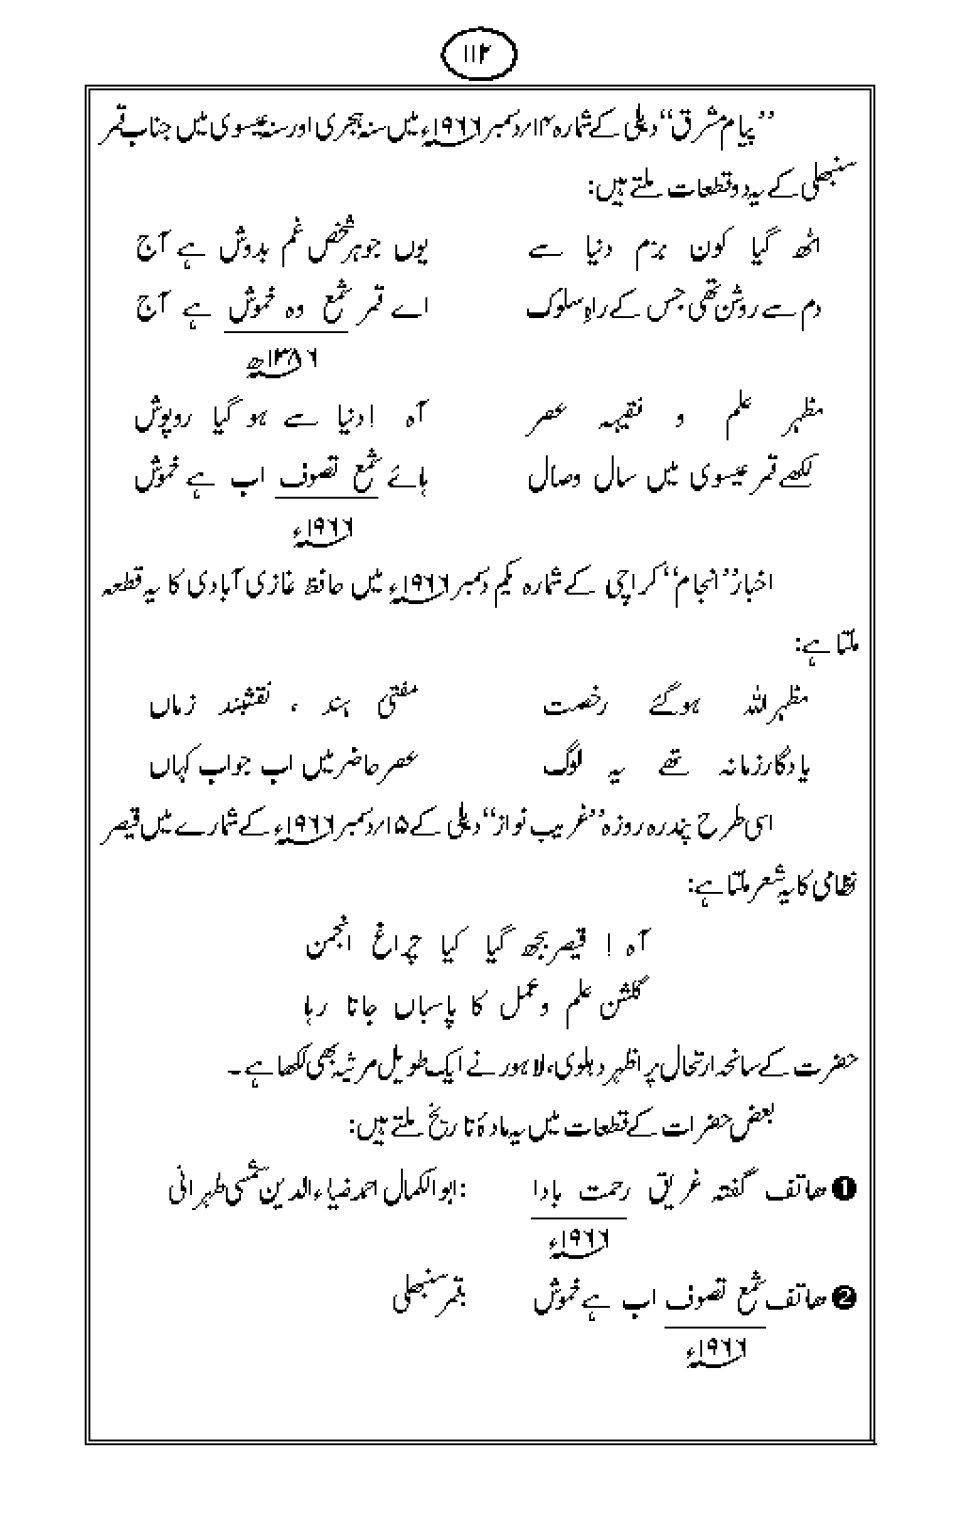 ۱۱۲
’’پیام مشرق‘‘ دہلی کے شمارہ ۱۴/دسمبر ۱۹۶۶ء میں سنہ ہجری اور سنہ عیسوی میں جناب قمر
سنبھلی کے یہ دو قطعات ملتے ہیں:
اٹھ گیا کون بزم دنیا سے یوں جو ہر شخص غم بدوش ہے آج
دم سے روشن تھی جس کے راہِ سلوک اے قمر شمع وہ خموش ہے آج
۱۳۸۶ھ
مظہر علم و فقیہہ عصر آہ ! دنیا سے ہو گیا روپوش
لکھے قمر عیسوی میں سال وصال ہائے شمع تصوف اب ہے خموش
۱۹۶۶ء
اخبار’’انجام‘‘ کراچی کے شمارہ یکم دسمبر ۱۹۶۶ء میں حافظ غازی آبادی کا یہ قطعہ
ملتا ہے:
مظہر اللہ ہوگئے رخصت مفتی ہند ، نقشبند زماں
یادگار زمانہ تھے یہ لوگ عصر حاضر میں اب جواب کہاں
اسی طرح پندرہ روزہ ’’غریب نواز‘‘ دہلی کے ۱۵/دسمبر ۱۹۶۶ء کے شمارے میں قیصر
نظامی کا یہ شعر ملتا ہے:
آہ ! قیصر بجھ گیا کیا چراغ انجمن
گلشن علم و عمل کا پاسباں جاتا رہا
حضرت کے سانحہ ارتحال پر اظہر دہلوی، لاہور نے ایک طویل مرثیہ بھی لکھا ہے۔
بعض حضرات کے قطعات میں یہ مادۂ تاریخ ملتے ہیں:
❶ ھاتف گفتہ غریق رحمت بادا :ابوالکمال احمد ضیاء الدین شمسی طہرانی
۱۹۶۶ء
❷ ھاتف شمع تصوف اب ہے خموش :قمر سنبھلی
۱۹۶۶ء